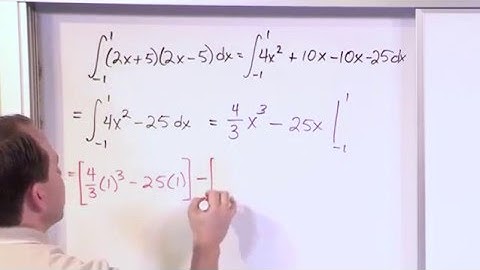 ∫₋₁¹ (2x+5)(2x-5)dx = ∫₋₁¹ 4x² + 10x - 10x - 25dx
= ∫₋₁¹ 4x² - 25 dx = 4/3 x³ - 25x |₋₁¹
= [4/3 (1)³ - 25(1)] - [